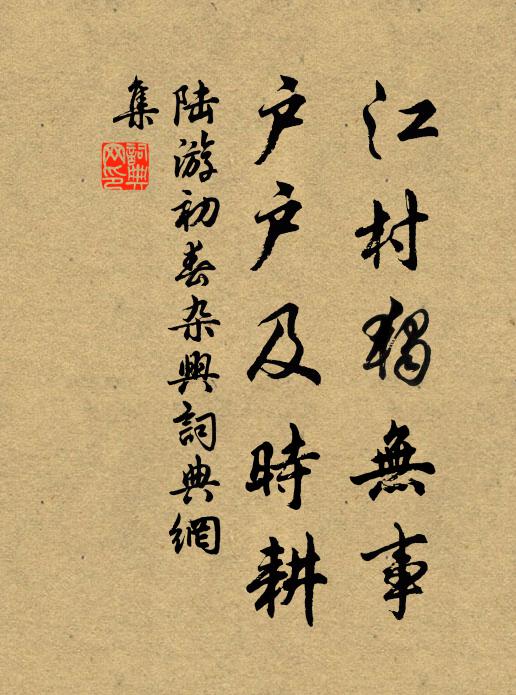 江村独無事
户户及時耕
陆游初春杂興詞典網
集
詞典网印